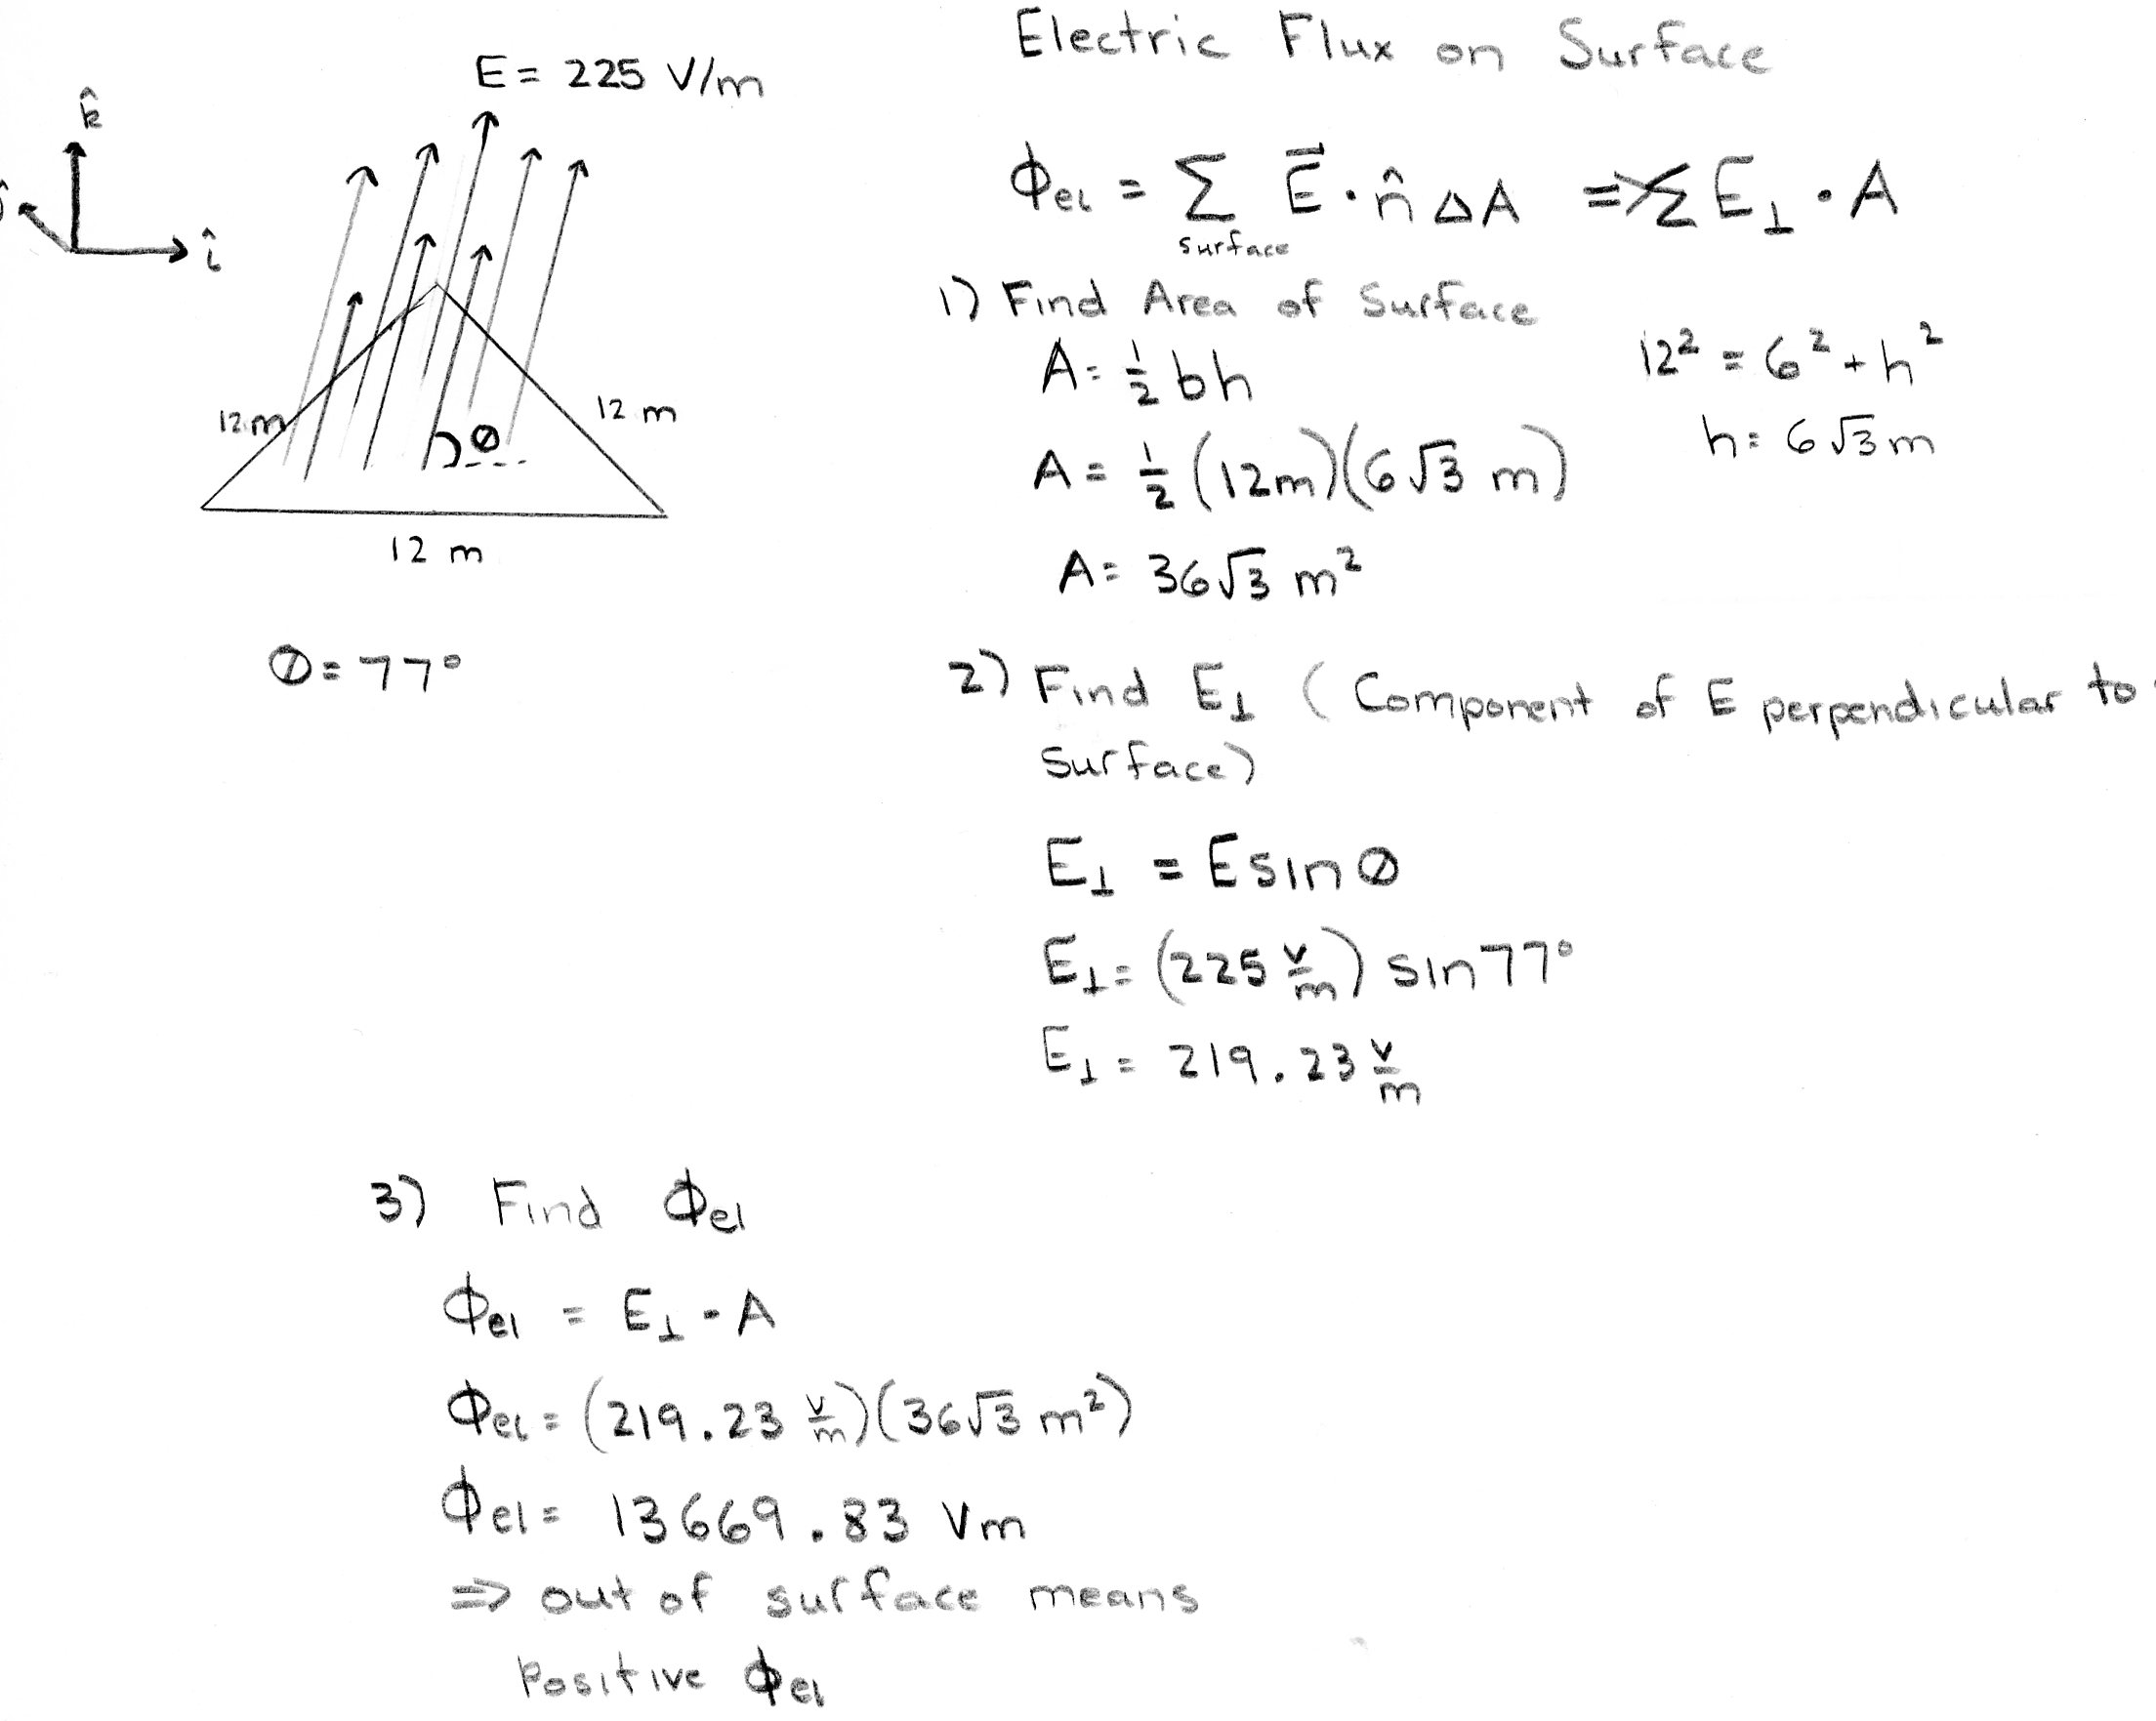 Electric Flux on Surface
E = 225 V/m
k̂
î
12 m
12 m
θ
12 m
θ = 77°
Φel = Σ E⃗ · n̂ ΔA ⇒ Σ E⊥ · A
surface
1) Find Area of Surface
A = ½ bh
12² = 6² + h²
h = 6√3 m
A = ½ (12m)(6√3 m)
A = 36√3 m²
2) Find E⊥ (Component of E perpendicular to
surface)
E⊥ = E sin θ
E⊥ = (225 V/m) sin 77°
E⊥ = 219.23 V/m
3) Find Φel
Φel = E⊥ · A
Φel = (219.23 V/m)(36√3 m²)
Φel = 13669.83 Vm
⇒ out of surface means
Positive Φel